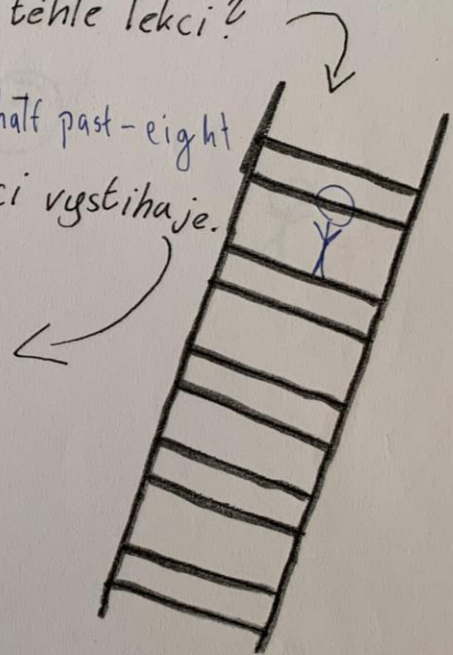 téhle lekci?
half past-eight
ci vystihaje.